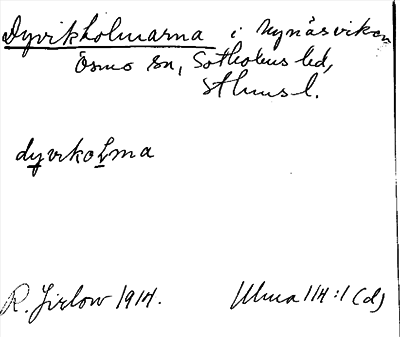 Dyvikholmarna i Nynäsviken
Ösmo sn, Sotholms hd,
Sthms l.
dyvikolma
R. Jirlow 1914. Ulma 114:1 (d)